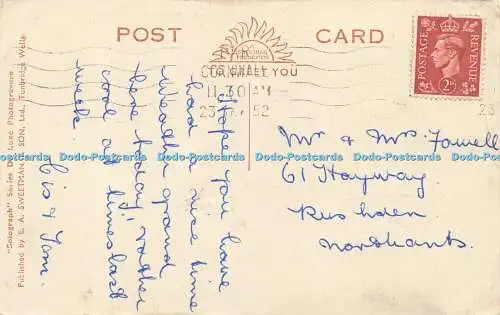 POST CARD
SWEETMAN
TO GREET YOU
CORNWALL
11-30 AM
23
52
POSTAGE REVENUE
2D
"Solograph" Series De Luxe Photogravure
Published by E. A. SWEETMAN & SON, Ltd., Tunbridge Wells
Hope you have
had a nice time
Weather grand
here today, rather
cool at times last
week. Cis & Tom.
Mr & Mrs. Fowell
61 Hayway
Rushden
Northants.
Dodo-Postcards Dodo-Postcards Dodo-Postcards Dodo-Postcards Dodo-Postcards
Dodo-Postcards Dodo-Postcards Dodo-Postcards Dodo-Postcards Dodo-Postcards